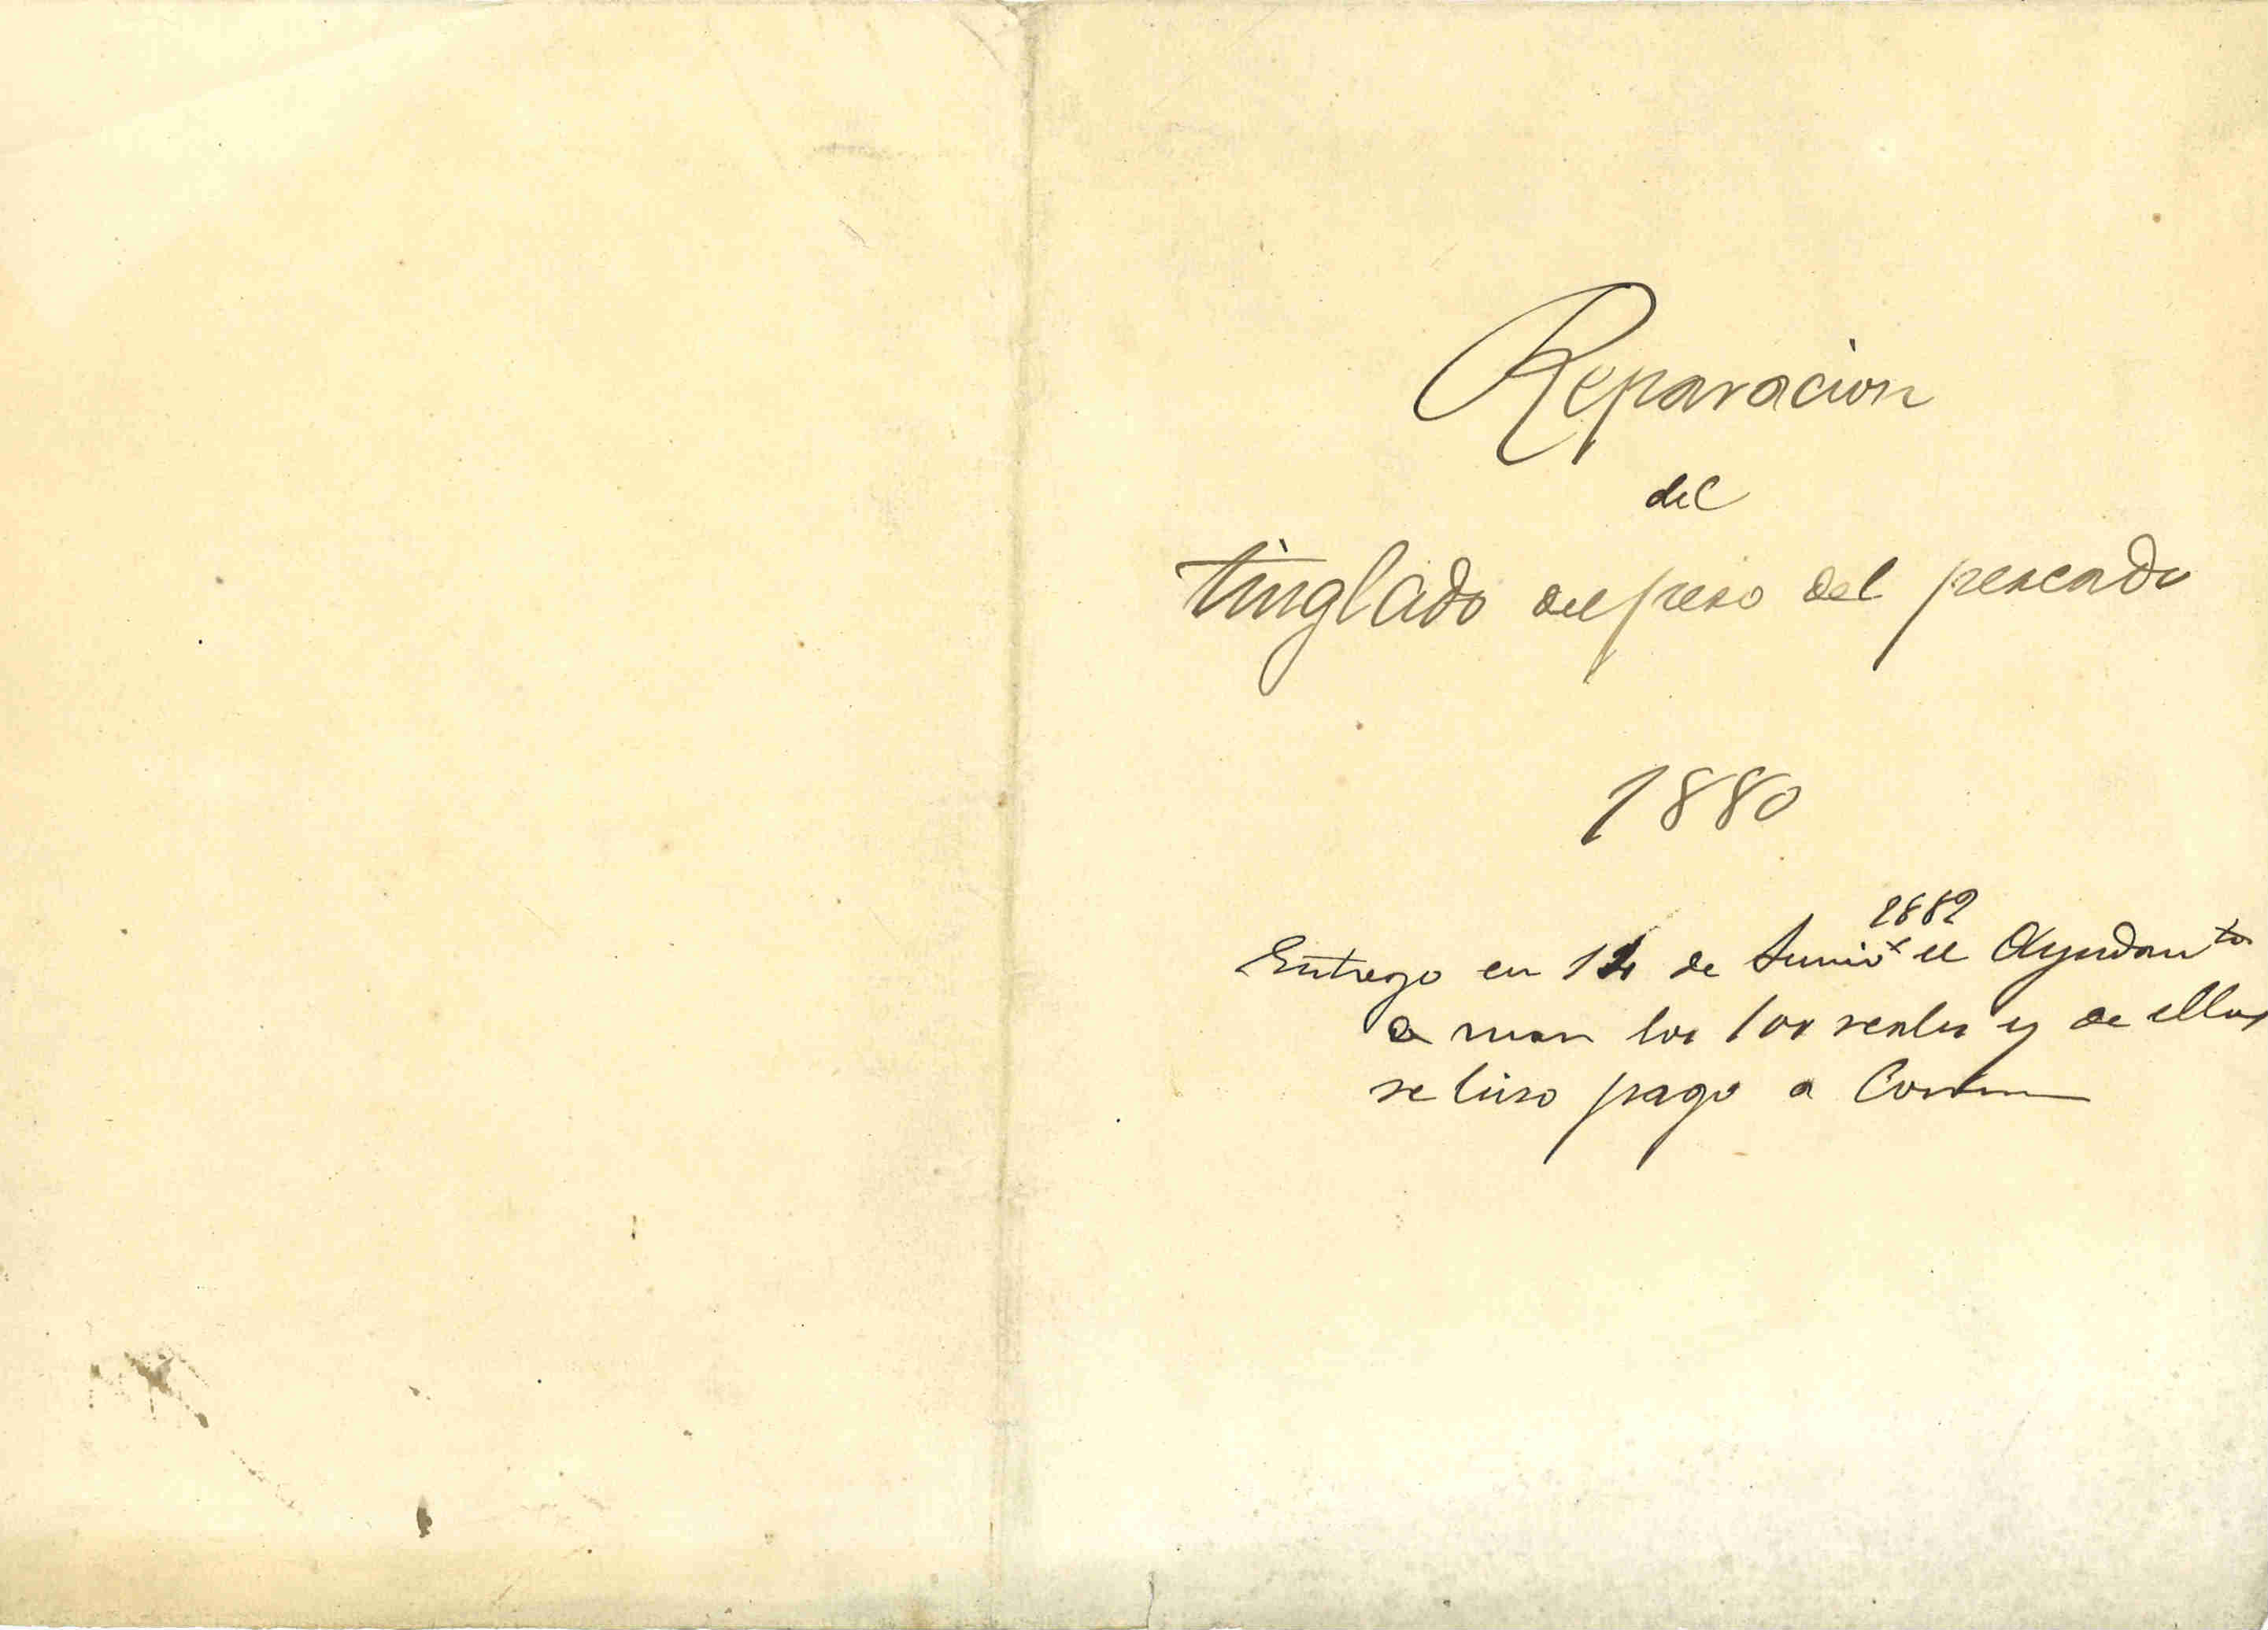 Reparacion
del
tinglado del peso del pescado
1880
1882
Entrego en de Junio x el Ayudan to
a los 100 reales y de ellos
se hizo pago a